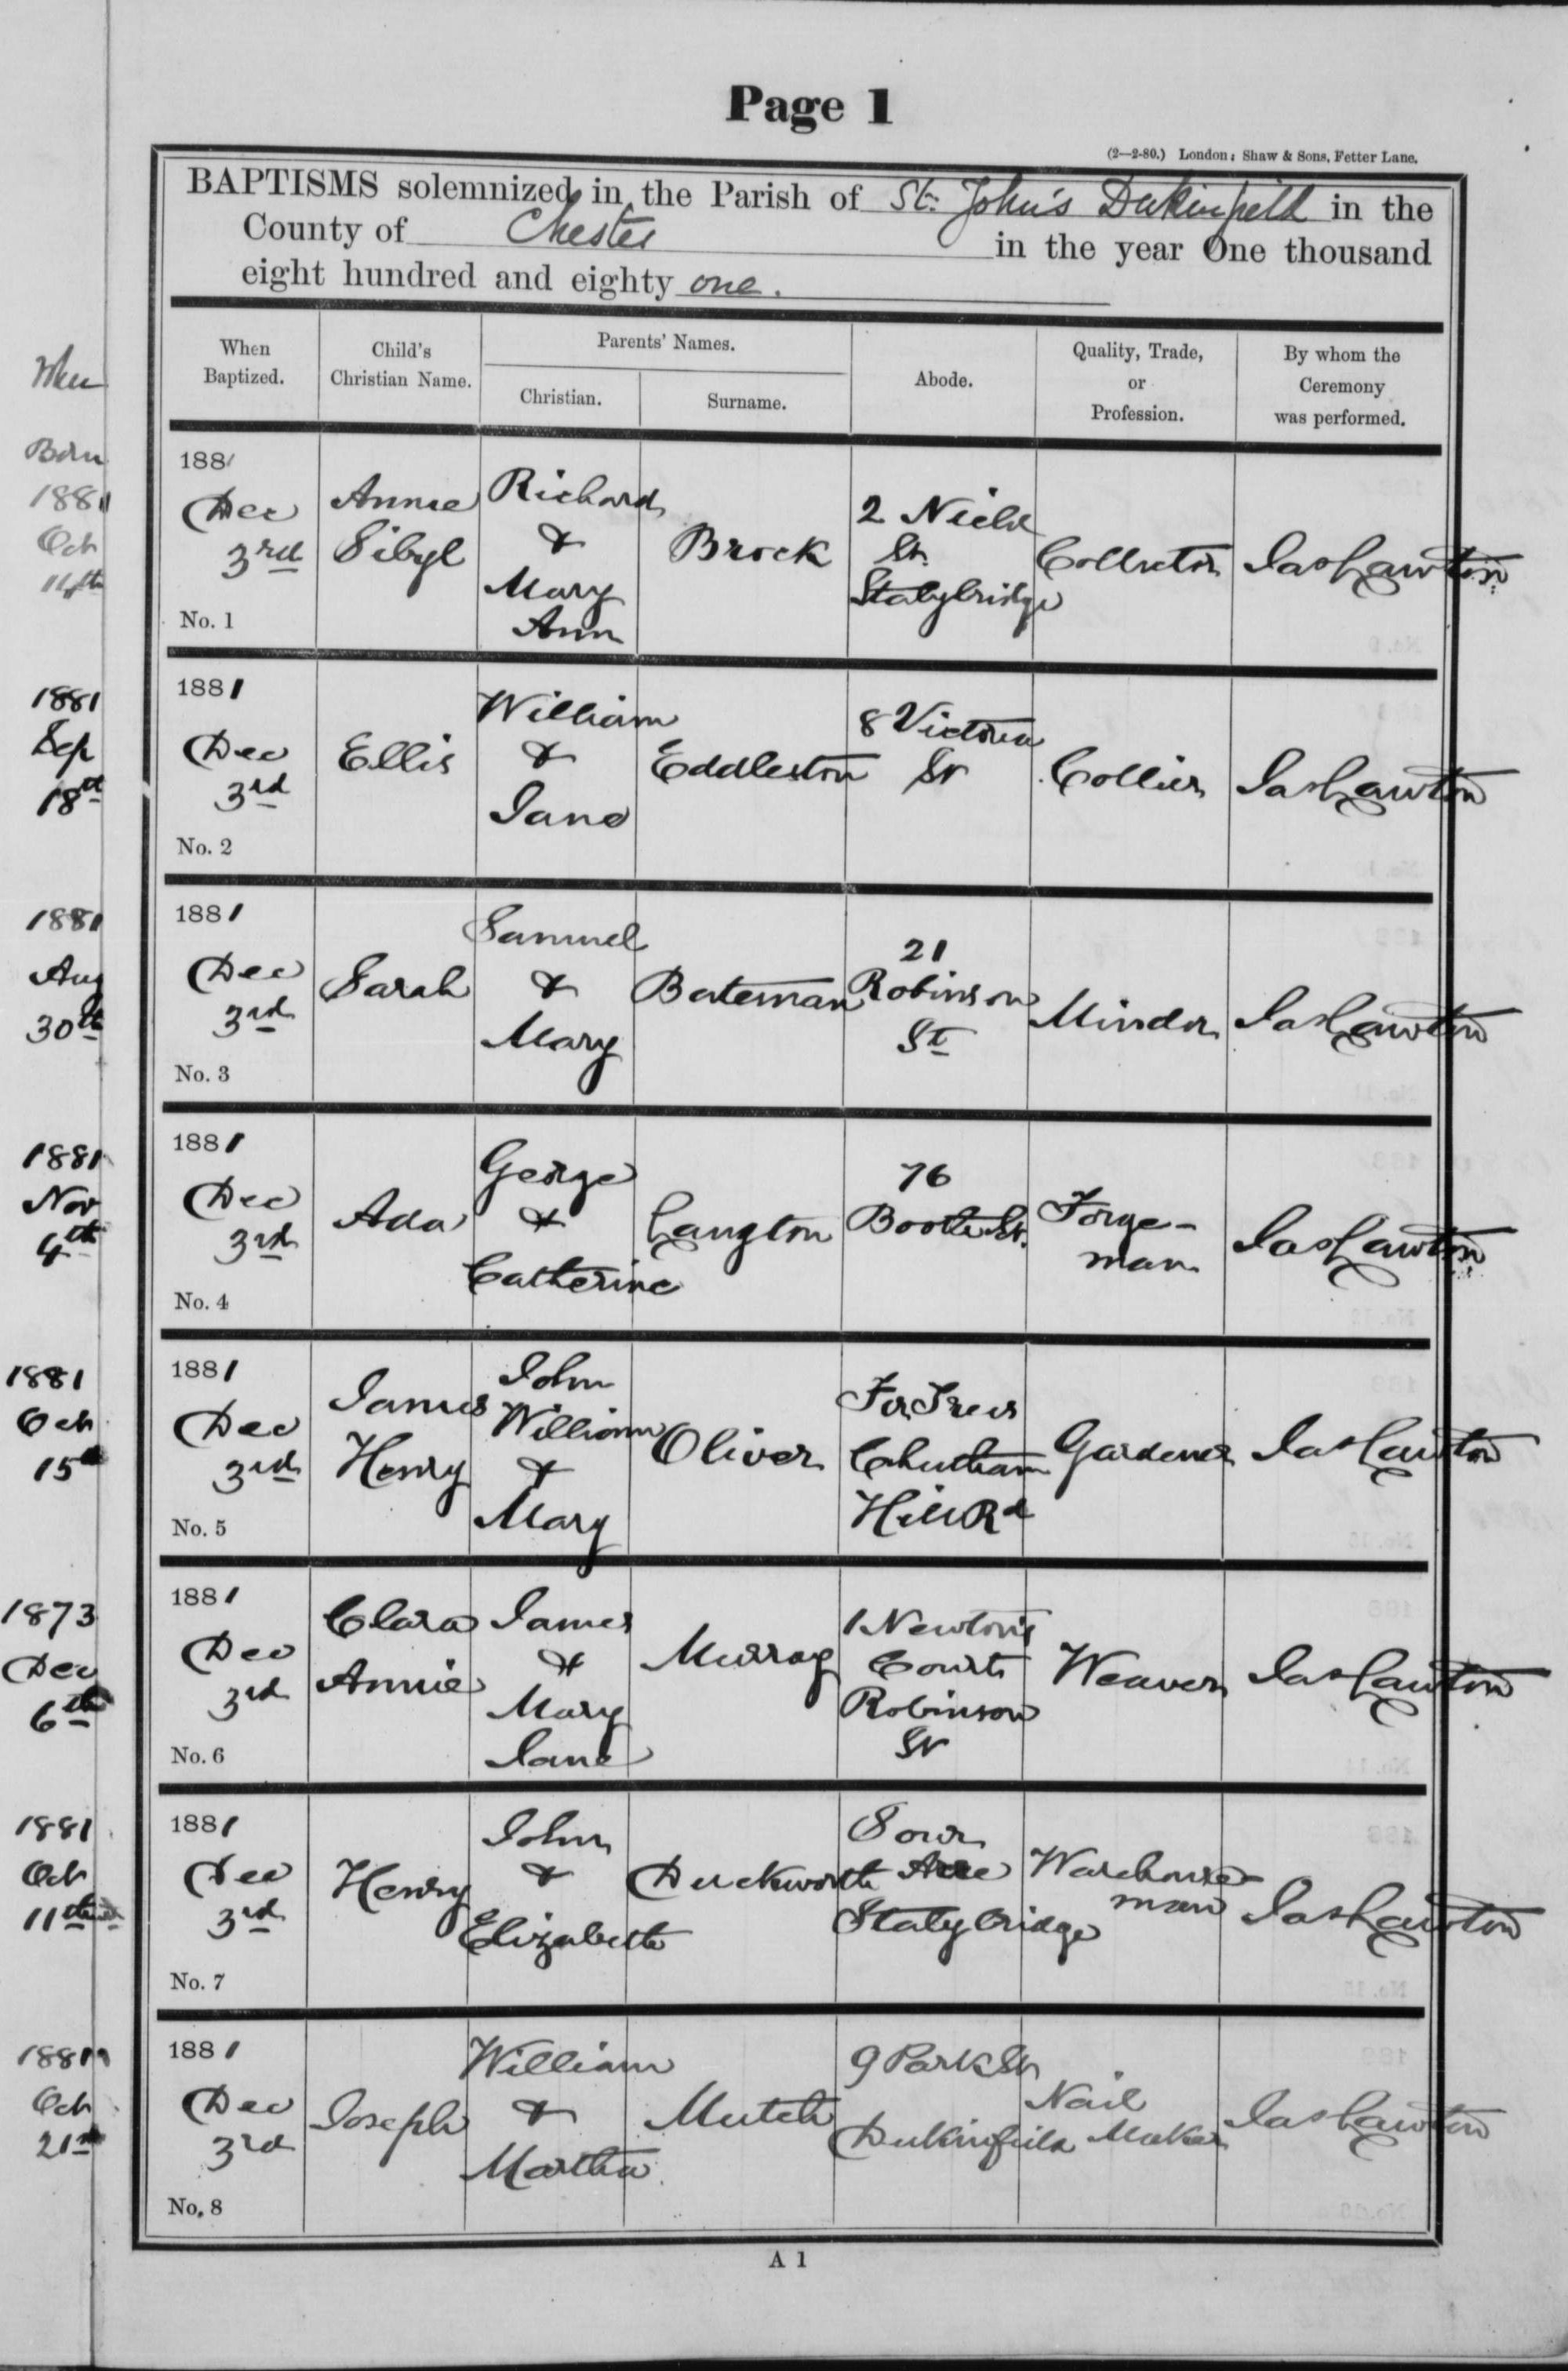 Page 1
(2—2-80.) London: Shaw & Sons, Fetter Lane.
BAPTISMS solemnized in the Parish of St. John's Dukinfield in the
County of Chester in the year One thousand
eight hundred and eighty one.
When
Baptized.
Child's
Christian Name.
Parents' Names.
Christian.
Surname.
Abode.
Quality, Trade,
or
Profession.
By whom the
Ceremony
was performed.
When
Born
1881
Oct
11th
1881
Dec
3rd
No. 1
Annie
Sibyl
Richard
&
Mary
Ann
Brock
2 Nield
St.
Stalybridge
Collector
Jas Lawton
1881
Sep
18th
1881
Dec
3rd
No. 2
Ellis
William
&
Jane
Eddleston
8 Victoria
St
Collier
Jas Lawton
1881
Aug
30th
1881
Dec
3rd
No. 3
Sarah
Samuel
&
Mary
Bateman
21
Robinson
St
Minder
Jas Lawton
1881
Nov
4th
1881
Dec
3rd
No. 4
Ada
George
&
Catherine
Langton
76
Booth St.
Forge-
man
Jas Lawton
1881
Oct
15th
1881
Dec
3rd
No. 5
James
Henry
John
William
&
Mary
Oliver
Fir Trees
Cheetham
Hill Rd
Gardener
Jas Lawton
1873
Dec
6th
1881
Dec
3rd
No. 6
Clara
Annie
James
&
Mary
Jane
Murray
1 Newton's
Court
Robinson
St
Weaver
Jas Lawton
1881
Oct
11th
1881
Dec
3rd
No. 7
Henry
John
&
Elizabeth
Duckworth
Sour
Acre
Stalybridge
Warehouse-
man
Jas Lawton
1881
Oct
21st
1881
Dec
3rd
No. 8
Joseph
William
&
Martha
Mutch
9 Park St
Dukinfield
Nail
Maker
Jas Lawton
A 1